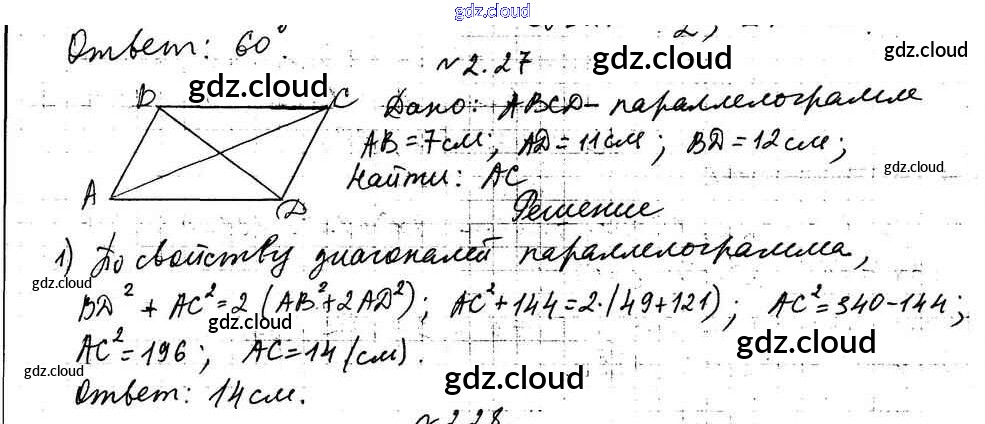 gdz.cloud
Ответ: 60°.
gdz.cloud
№2.27
gdz.cloud
gdz.cloud
gdz.cloud
B C Дано: ABCD - параллелограмм
gdz.cloud
AB = 7см; AD = 11см; BD = 12см;
gdz.cloud
A D Найти: AC
Решение
1) По свойству диагоналей параллелограмма,
gdz.cloud
gdz.cloud
BD² + AC² = 2 (AB² + 2AD²); AC² + 144 = 2·(49 + 121); AC² = 340 - 144;
gdz.cloud
gdz.cloud
AC² = 196; AC = 14 (см).
gdz.cloud
gdz.cloud
Ответ: 14 см.
№2.28